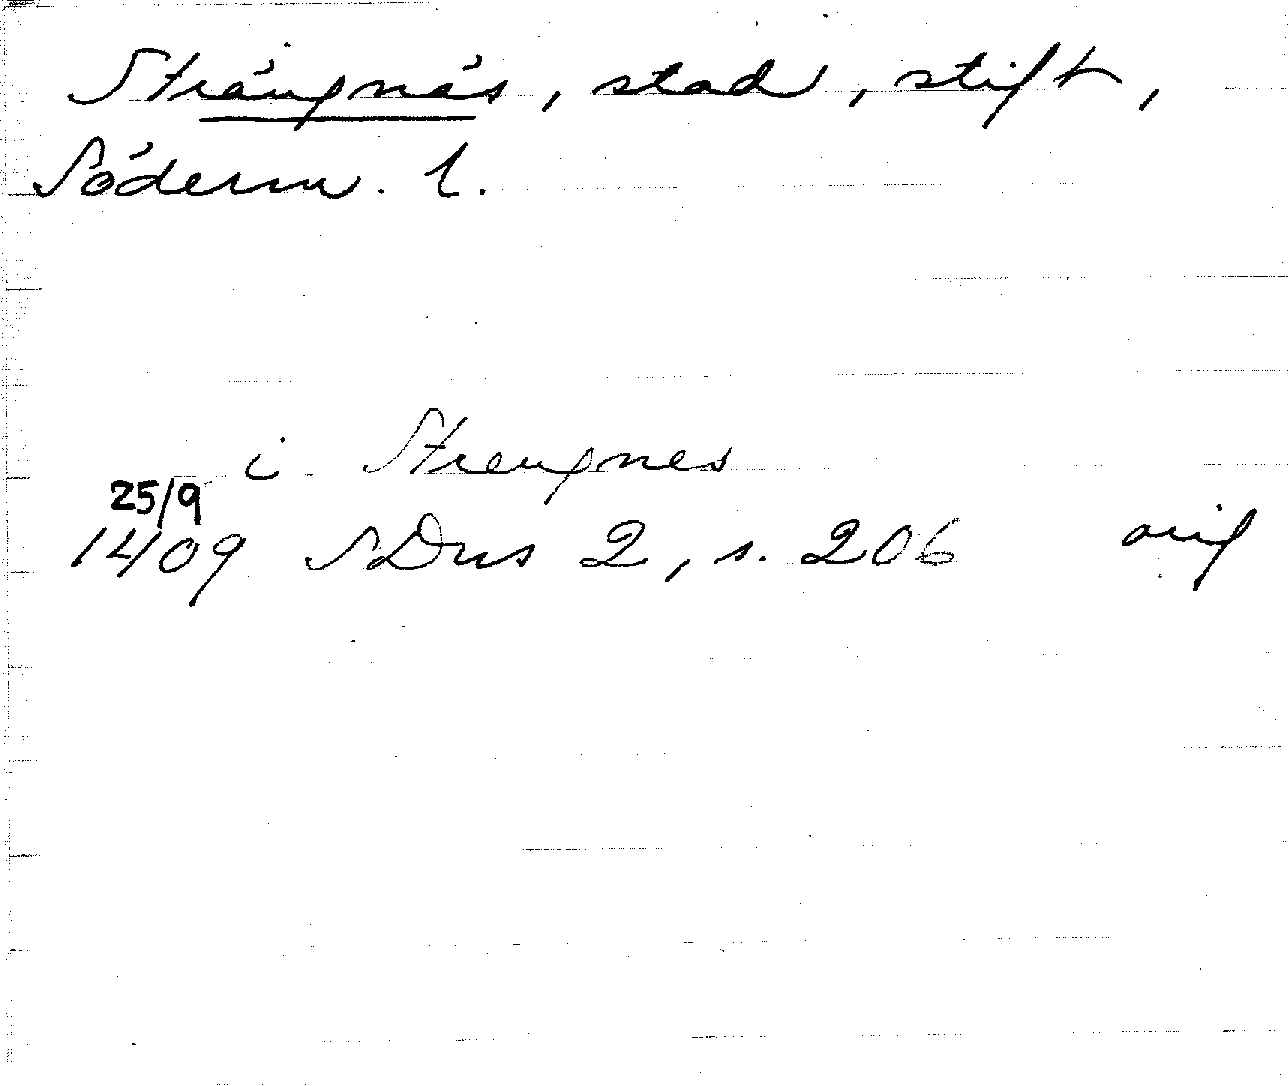 Strängnäs, stad, stift,
Söderm. l.
i Strengnes
25/9
1409 SDns 2, s. 206 orig